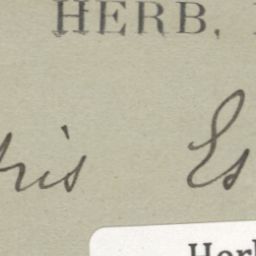 HERB.
ris Es
Her